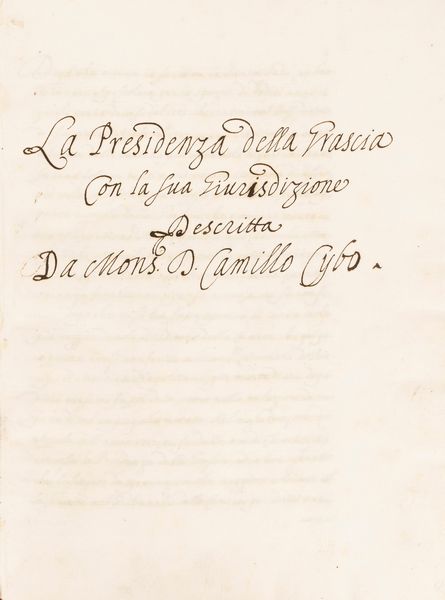 La Presidenza della Grascia
Con la sua Giurisdizione
Descritta
Da Mons. D. Camillo Cybo.